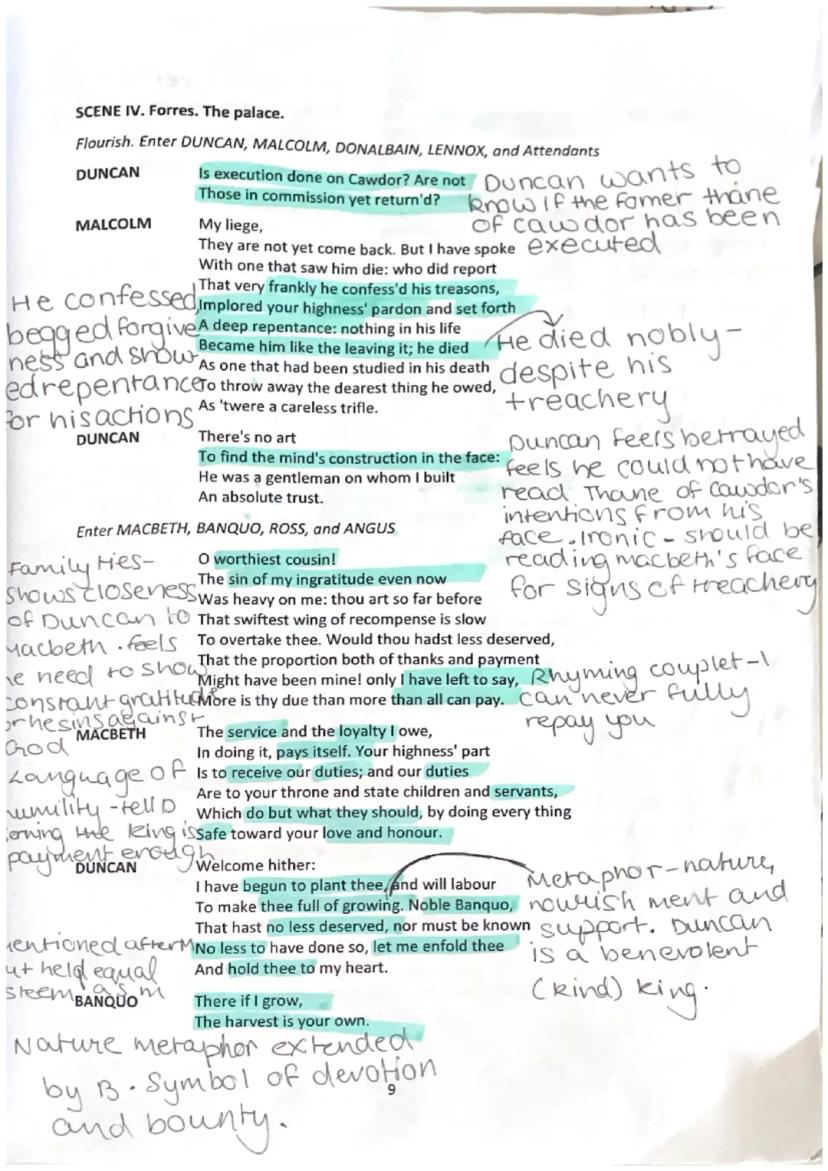 SCENE IV. Forres. The palace.
Flourish. Enter DUNCAN, MALCOLM, DONALBAIN, LENNOX, and Attendants
DUNCAN Is execution done on Cawdor? Are not
Those in commission yet return'd?
Duncan wants to
know if the fomer thane
of cawdor has been
executed
MALCOLM My liege,
They are not yet come back. But I have spoke
With one that saw him die: who did report
That very frankly he confess'd his treasons,
Implored your highness' pardon and set forth
A deep repentance: nothing in his life
Became him like the leaving it; he died
As one that had been studied in his death
To throw away the dearest thing he owed,
As 'twere a careless trifle.
He confessed
begged forgive
ness and show
ed repentance
for his actions
He died nobly-
despite his
treachery
DUNCAN There's no art
To find the mind's construction in the face:
He was a gentleman on whom I built
An absolute trust.
Duncan feels betrayed
feels he could not have
read Thane of Cawdor's
intentions from his
face. Ironic - should be
reading macbeth's face
for signs of treachery
Enter MACBETH, BANQUO, ROSS, and ANGUS
O worthiest cousin!
The sin of my ingratitude even now
Was heavy on me: thou art so far before
That swiftest wing of recompense is slow
To overtake thee. Would thou hadst less deserved,
That the proportion both of thanks and payment
Might have been mine! only I have left to say,
More is thy due than more than all can pay.
Family ties-
shows closeness
of Duncan to
Macbeth. feels
need to show
constant gratitude
or he sins against
God
Rhyming couplet-I
can never fully
repay you
MACBETH The service and the loyalty I owe,
In doing it, pays itself. Your highness' part
Is to receive our duties; and our duties
Are to your throne and state children and servants,
Which do but what they should, by doing every thing
Safe toward your love and honour.
Language of
umility - tell D
the King is
payment enough
DUNCAN Welcome hither:
I have begun to plant thee, and will labour
To make thee full of growing. Noble Banquo,
That hast no less deserved, nor must be known
No less to have done so, let me enfold thee
And hold thee to my heart.
Metaphor-nature,
nourish ment and
support. Duncan
is a benevolent
(kind) king.
entioned after M
ut held equal
steem as m
BANQUO There if I grow,
The harvest is your own.
Nature metaphor extended
by B. Symbol of devotion
and bounty.
9